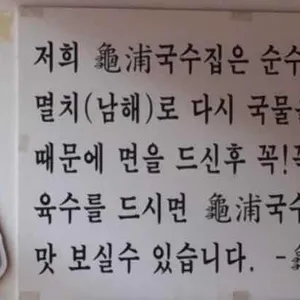 저희 龜浦국수집은 순수
멸치(남해)로 다시 국물을
때문에 면을 드신후 꼭!
육수를 드시면 龜浦국수
맛 보실수 있습니다. -